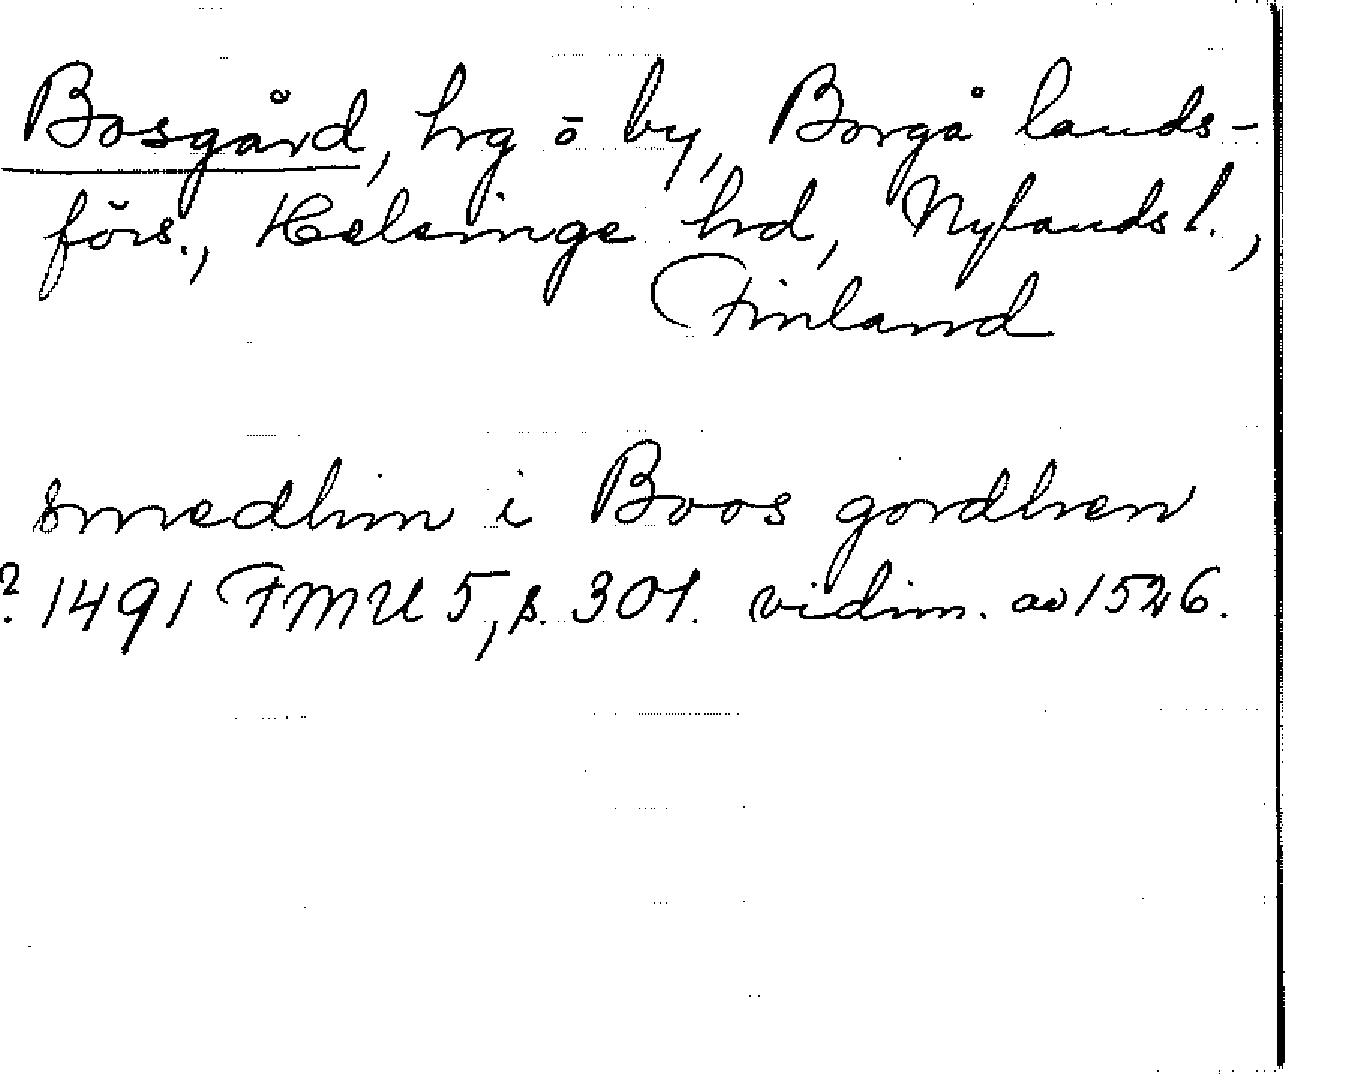 Bosgård, hrg o by, Borgå lands-
förs., Helsinge hrd, Nylands l.,
Finland
smedhin i Boos gordhen
? 1491 FMU 5, s. 301. vidim. av 1526.